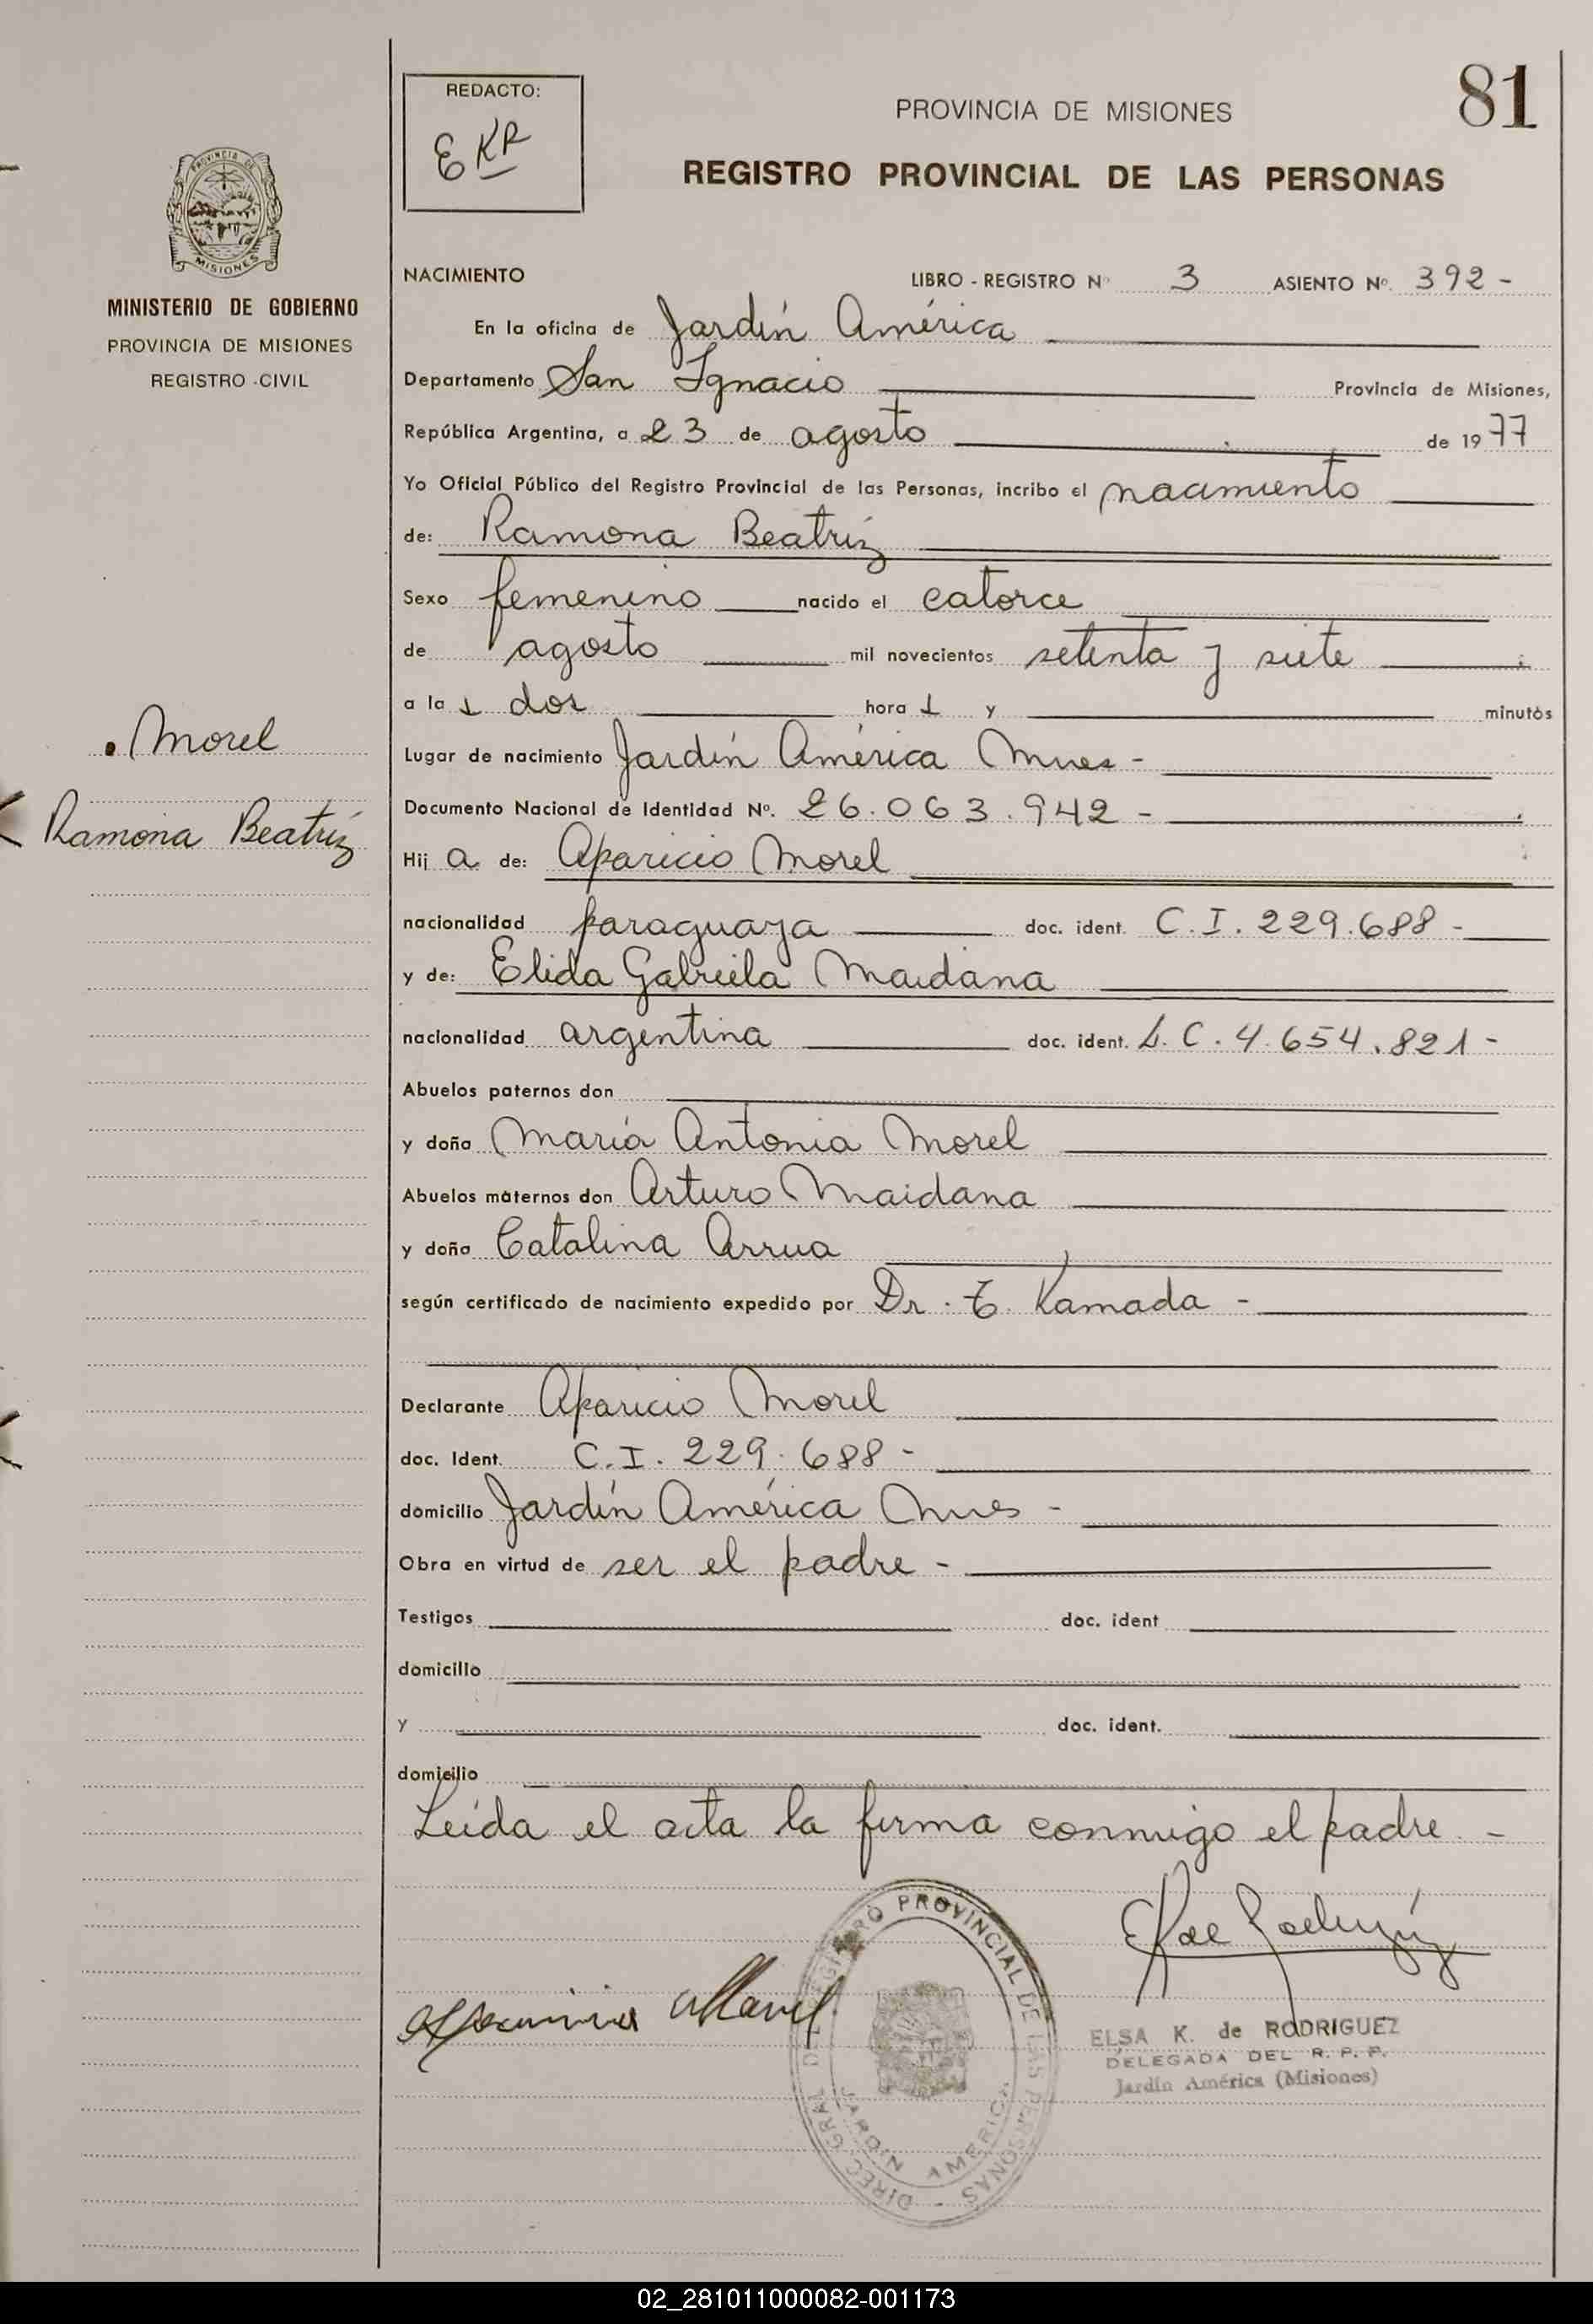 REDACTO:
EKR
PROVINCIA DE MISIONES
81
REGISTRO PROVINCIAL DE LAS PERSONAS
PROVINCIA DE
MISIONES
MINISTERIO DE GOBIERNO
PROVINCIA DE MISIONES
REGISTRO -CIVIL
NACIMIENTO LIBRO - REGISTRO Nº 3 ASIENTO Nº. 392 -
En la oficina de Jardín América
Departamento San Ignacio Provincia de Misiones,
República Argentina, a 23 de agosto de 1977
Yo Oficial Público del Registro Provincial de las Personas, incribo el nacimiento
de: Ramona Beatríz
Sexo femenino nacido el catorce
de agosto mil novecientos setenta y siete
a la s dos hora s y minutos
Morel
Ramona Beatríz
Lugar de nacimiento Jardín América Mnes -
Documento Nacional de Identidad Nº. 26.063.942 -
Hij a de: Aparicio Morel
nacionalidad paraguaya doc. ident. C.I. 229.688 -
y de: Elida Gabriela Maidana
nacionalidad argentina doc. ident. L.C. 4.654.821 -
Abuelos paternos don
y doña María Antonia Morel
Abuelos maternos don Arturo Maidana
y doña Catalina Arrua
según certificado de nacimiento expedido por Dr. T. Kamada -
Declarante Aparicio Morel
doc. Ident. C.I. 229.688 -
domicilio Jardín América Mnes -
Obra en virtud de ser el padre -
Testigos doc. ident
domicilio
y doc. ident.
domicilio
Leída el acta la firma conmigo el padre -
DIREC. GRAL. DEL REGISTRO PROVINCIAL DE LAS PERSONAS -
JARDIN AMERICA
ELSA K. de RODRIGUEZ
DELEGADA DEL R. P. P.
Jardín América (Misiones)
02_281011000082-001173